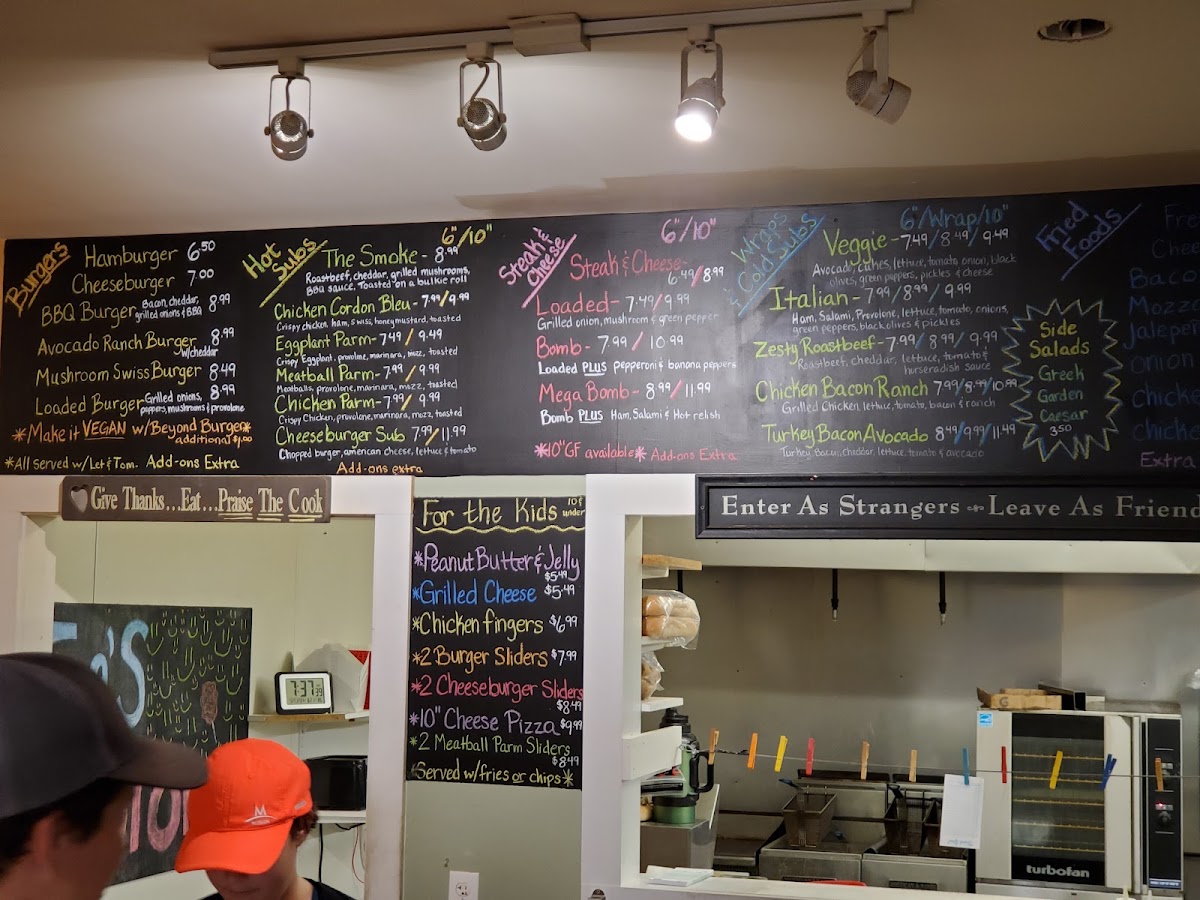 Burgers
Hamburger 6.50
Cheeseburger 7.00
BBQ Burger Bacon, cheddar, grilled onions & BBQ 8.99
Avocado Ranch Burger 8.99
w/cheddar
Mushroom Swiss Burger 8.49
Loaded Burger Grilled onions, peppers, mushrooms & provolone 8.99
*Make it VEGAN w/Beyond Burger*
additional $1.00
*All served w/Let & Tom. Add-ons Extra
Hot Subs
6"/10"
The Smoke - 8.99
Roastbeef, cheddar, grilled mushrooms,
BBQ sauce, Toasted on a bulkie roll
Chicken Cordon Bleu - 7.99/9.99
Crispy chicken, ham, swiss, honey mustard, toasted
Eggplant Parm - 7.49/9.49
Crispy Eggplant, provolone, marinara, mozz, toasted
Meatball Parm - 7.99/9.99
Meatballs, provolone, marinara, mozz, toasted
Chicken Parm - 7.99/9.99
Crispy Chicken, provolone, marinara, mozz, toasted
Cheeseburger Sub 7.99/11.99
Chopped burger, american cheese, lettuce & tomato
Add-ons extra
Steak & Cheese
6"/10"
Steak & Cheese -
6.49/8.99
Loaded - 7.49/9.99
Grilled onion, mushroom & green pepper
Bomb - 7.99/10.99
Loaded PLUS pepperoni & banana peppers
Mega Bomb - 8.99/11.99
Bomb PLUS Ham, Salami & Hot relish
*10" GF available* Add-ons Extra
Wraps & Cold Subs
6"/Wrap/10"
Veggie - 7.49/8.49/9.49
Avocado, cukes, lettuce, tomato, onion, black
olives, green peppers, pickles & cheese
Italian - 7.99/8.99/9.99
Ham, Salami, Provolone, lettuce, tomato, onions,
green peppers, black olives & pickles
Zesty Roastbeef - 7.99/8.99/9.99
Roastbeef, cheddar, lettuce, tomato &
horseradish sauce
Chicken Bacon Ranch 7.99/8.99/10.99
Grilled Chicken, lettuce, tomato, bacon & ranch
Turkey Bacon Avocado 8.49/9.99/11.49
Turkey, Bacon, cheddar, lettuce, tomato & avocado
Fried Foods
Side
Salads
Greek
Garden
Caesar
3.50
Chees
Baco
Mozz
Jalepen
Onion
Chick
Chicke
Extra
Give Thanks...Eat...Praise The Cook
Enter As Strangers Leave As Friend
For the Kids 10 & under
*Peanut Butter & Jelly
$5.49
*Grilled Cheese $5.49
*Chicken fingers $6.99
*2 Burger Sliders $7.99
*2 Cheeseburger Sliders
$8.49
*10" Cheese Pizza $9.99
*2 Meatball Parm Sliders
$8.49
*Served w/fries or chips*
'S
7:37
M
turbofan